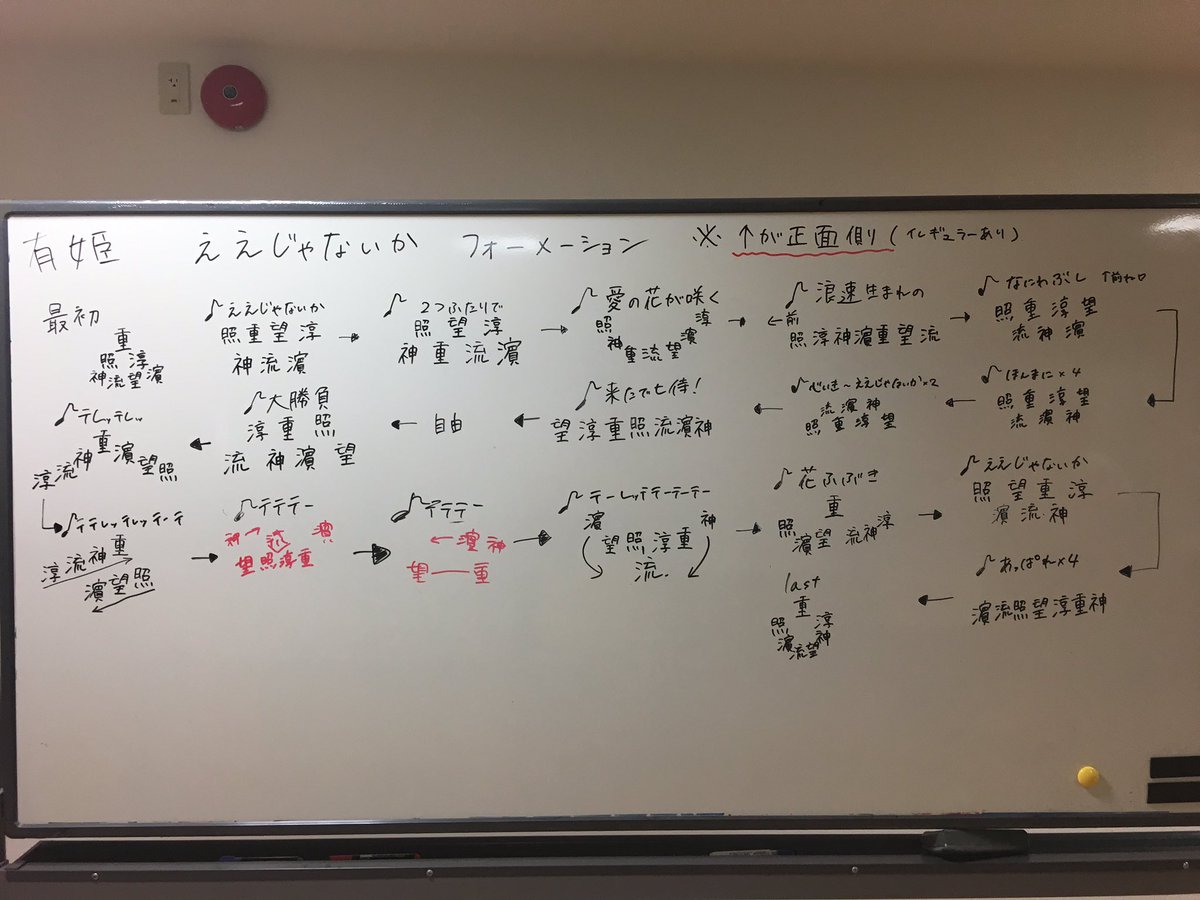 有姫 ええじゃないか フォーメーション ※ ↑が正面側(イレギュラーあり)
最初
重
照淳
神流望濱
→
♪ええじゃないか
照重望淳
神流濱
→
♪2つふたりで
照望淳
神重流濱
→
♪愛の花が咲く
照 淳
神 濱
重流望
→
♪浪速生まれの
←前
照淳神濱重望流
→
♪なにわぶし ↑前
照重淳望
流神濱
♪ほんまに×4
照重淳望
流濱神
←
♪心いき〜ええじゃないか×2
流濱神
照重淳望
←
♪来たで七侍!
望淳重照流濱神
←
自由
←
♪大勝負
淳重照
流神濱望
←
♪テレッテレッ
重
淳流神 濱望照
♪テテレッテレッテーテ
淳流神重
濱望照
→
♪テテテー
神→ 流 濱
望照淳重
→
♪テテテー
←濱神
望——重
→
♪テーレッテテーテーテー
濱 神
望照淳重
流
→
♪花ふぶき
重
照 淳
濱望 流神
→
♪ええじゃないか
照望重淳
濱流神
♪あっぱれ×4
濱流照望淳重神
←
last
重
照 淳
濱 神
流望